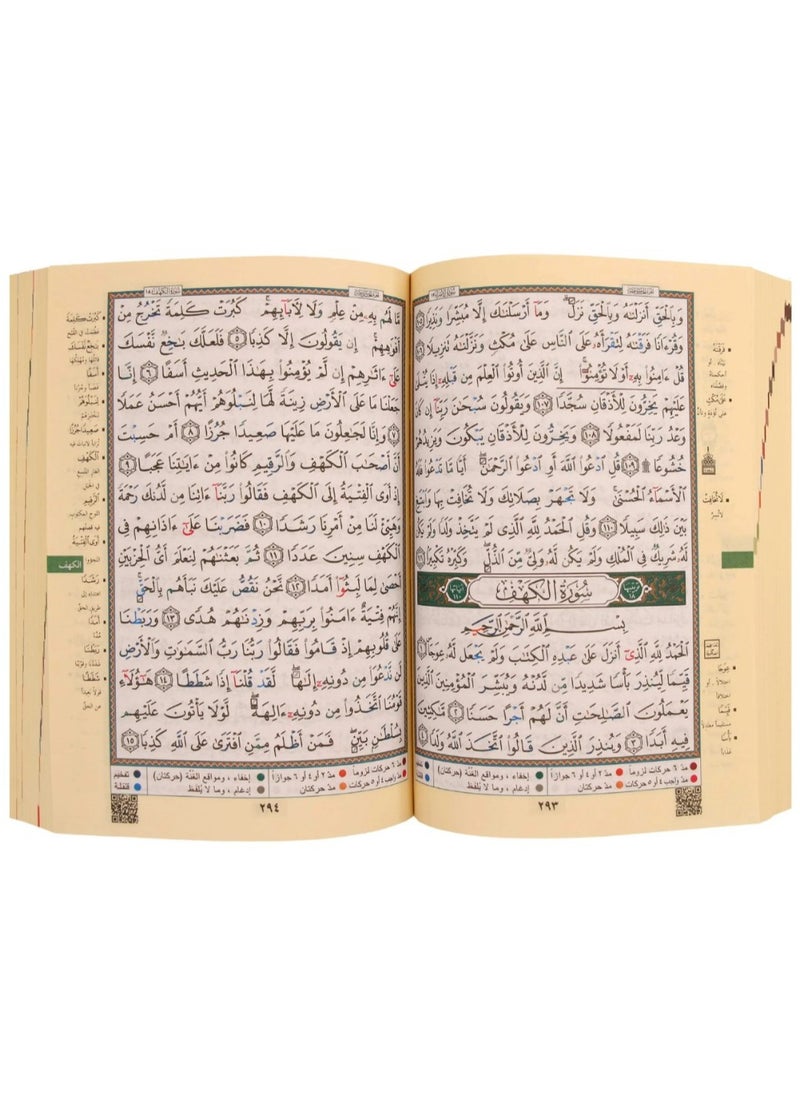 وَبِٱلْحَقِّ أَنزَلْنَٰهُ وَبِٱلْحَقِّ نَزَلَ ۗ وَمَآ أَرْسَلْنَٰكَ إِلَّا مُبَشِّرًا وَنَذِيرًا ١٠٥
وَقُرْءَانًا فَرَقْنَٰهُ لِتَقْرَأَهُۥ عَلَى ٱلنَّاسِ عَلَىٰ مُكْثٍ وَنَزَّلْنَٰهُ تَنزِيلًا ١٠٦
قُلْ ءَامِنُوا۟ بِهِۦٓ أَوْ لَا تُؤْمِنُوٓا۟ ۚ إِنَّ ٱلَّذِينَ أُوتُوا۟ ٱلْعِلْمَ مِن قَبْلِهِۦٓ إِذَا يُتْلَىٰ
عَلَيْهِمْ يَخِرُّونَ لِلْأَذْقَانِ سُجَّدًا ١٠٧ وَيَقُولُونَ سُبْحَٰنَ رَبِّنَآ إِن كَانَ
وَعْدُ رَبِّنَا لَمَفْعُولًا ١٠٨ وَيَخِرُّونَ لِلْأَذْقَانِ يَبْكُونَ وَيَزِيدُهُمْ
خُشُوعًا ۩ ١٠٩ قُلِ ٱدْعُوا۟ ٱللَّهَ أَوِ ٱدْعُوا۟ ٱلرَّحْمَٰنَ ۖ أَيًّا مَّا تَدْعُوا۟ فَلَهُ
ٱلْأَسْمَآءُ ٱلْحُسْنَىٰ ۚ وَلَا تَجْهَرْ بِصَلَاتِكَ وَلَا تُخَافِتْ بِهَا وَٱبْتَغِ
بَيْنَ ذَٰلِكَ سَبِيلًا ١١٠ وَقُلِ ٱلْحَمْدُ لِلَّهِ ٱلَّذِى لَمْ يَتَّخِذْ وَلَدًا وَلَمْ يَكُن
لَّهُۥ شَرِيكٌ فِى ٱلْمُلْكِ وَلَمْ يَكُن لَّهُۥ وَلِىٌّ مِّنَ ٱلذُّلِّ ۖ وَكَبِّرْهُ تَكْبِيرًا ١١١
سُورَةُ الكَهْفِ
بِسْمِ ٱللَّهِ ٱلرَّحْمَٰنِ ٱلرَّحِيمِ
ٱلْحَمْدُ لِلَّهِ ٱلَّذِىٓ أَنزَلَ عَلَىٰ عَبْدِهِ ٱلْكِتَٰبَ وَلَمْ يَجْعَل لَّهُۥ عِوَجَا ١
قَيِّمًا لِّيُنذِرَ بَأْسًا شَدِيدًا مِّن لَّدُنْهُ وَيُبَشِّرَ ٱلْمُؤْمِنِينَ ٱلَّذِينَ
يَعْمَلُونَ ٱلصَّٰلِحَٰتِ أَنَّ لَهُمْ أَجْرًا حَسَنًا ٢ مَّٰكِثِينَ
فِيهِ أَبَدًا ٣ وَيُنذِرَ ٱلَّذِينَ قَالُوا۟ ٱتَّخَذَ ٱللَّهُ وَلَدًا ٤
مدّ ٦ حركات لزوماً مدّ ٢ أو ٤ أو ٦ جوازاً إخفاء، ومواقع الغُنَّة (حركتان) تفخيم
مدّ واجب ٤ أو ٥ حركات مدّ حركتان إدغام، وما لا يُلفَظ قلقلة
٢٩٣
مَّا لَهُم بِهِۦ مِنْ عِلْمٍ وَلَا لِءَابَآئِهِمْ ۚ كَبُرَتْ كَلِمَةً تَخْرُجُ مِنْ
أَفْوَٰهِهِمْ ۚ إِن يَقُولُونَ إِلَّا كَذِبًا ٥ فَلَعَلَّكَ بَٰخِعٌ نَّفْسَكَ
عَلَىٰٓ ءَاثَٰرِهِمْ إِن لَّمْ يُؤْمِنُوا۟ بِهَٰذَا ٱلْحَدِيثِ أَسَفًا ٦ إِنَّا
جَعَلْنَا مَا عَلَى ٱلْأَرْضِ زِينَةً لَّهَا لِنَبْلُوَهُمْ أَيُّهُمْ أَحْسَنُ عَمَلًا
٧ وَإِنَّا لَجَٰعِلُونَ مَا عَلَيْهَا صَعِيدًا جُرُزًا ٨ أَمْ حَسِبْتَ
أَنَّ أَصْحَٰبَ ٱلْكَهْفِ وَٱلرَّقِيمِ كَانُوا۟ مِنْ ءَايَٰتِنَا عَجَبًا ٩
إِذْ أَوَى ٱلْفِتْيَةُ إِلَى ٱلْكَهْفِ فَقَالُوا۟ رَبَّنَآ ءَاتِنَا مِن لَّدُنكَ رَحْمَةً
وَهَيِّئْ لَنَا مِنْ أَمْرِنَا رَشَدًا ١٠ فَضَرَبْنَا عَلَىٰٓ ءَاذَانِهِمْ فِى
ٱلْكَهْفِ سِنِينَ عَدَدًا ١١ ثُمَّ بَعَثْنَٰهُمْ لِنَعْلَمَ أَىُّ ٱلْحِزْبَيْنِ
أَحْصَىٰ لِمَا لَبِثُوٓا۟ أَمَدًا ١٢ نَّحْنُ نَقُصُّ عَلَيْكَ نَبَأَهُم بِٱلْحَقِّ ۚ
إِنَّهُمْ فِتْيَةٌ ءَامَنُوا۟ بِرَبِّهِمْ وَزِدْنَٰهُمْ هُدًى ١٣ وَرَبَطْنَا
عَلَىٰ قُلُوبِهِمْ إِذْ قَامُوا۟ فَقَالُوا۟ رَبُّنَا رَبُّ ٱلسَّمَٰوَٰتِ وَٱلْأَرْضِ
لَن نَّدْعُوَا۟ مِن دُونِهِۦٓ إِلَٰهًا ۖ لَّقَدْ قُلْنَآ إِذًا شَطَطًا ١٤ هَٰٓؤُلَآءِ
قَوْمُنَا ٱتَّخَذُوا۟ مِن دُونِهِۦٓ ءَالِهَةً ۖ لَّوْلَا يَأْتُونَ عَلَيْهِم
بِسُلْطَٰنٍۭ بَيِّنٍ ۖ فَمَنْ أَظْلَمُ مِمَّنِ ٱفْتَرَىٰ عَلَى ٱللَّهِ كَذِبًا ١٥
مدّ ٦ حركات لزوماً مدّ ٢ أو ٤ أو ٦ جوازاً إخفاء، ومواقع الغُنَّة (حركتان) تفخيم
مدّ واجب ٤ أو ٥ حركات مدّ حركتان إدغام، وما لا يُلفَظ قلقلة
٢٩٤
الكهف